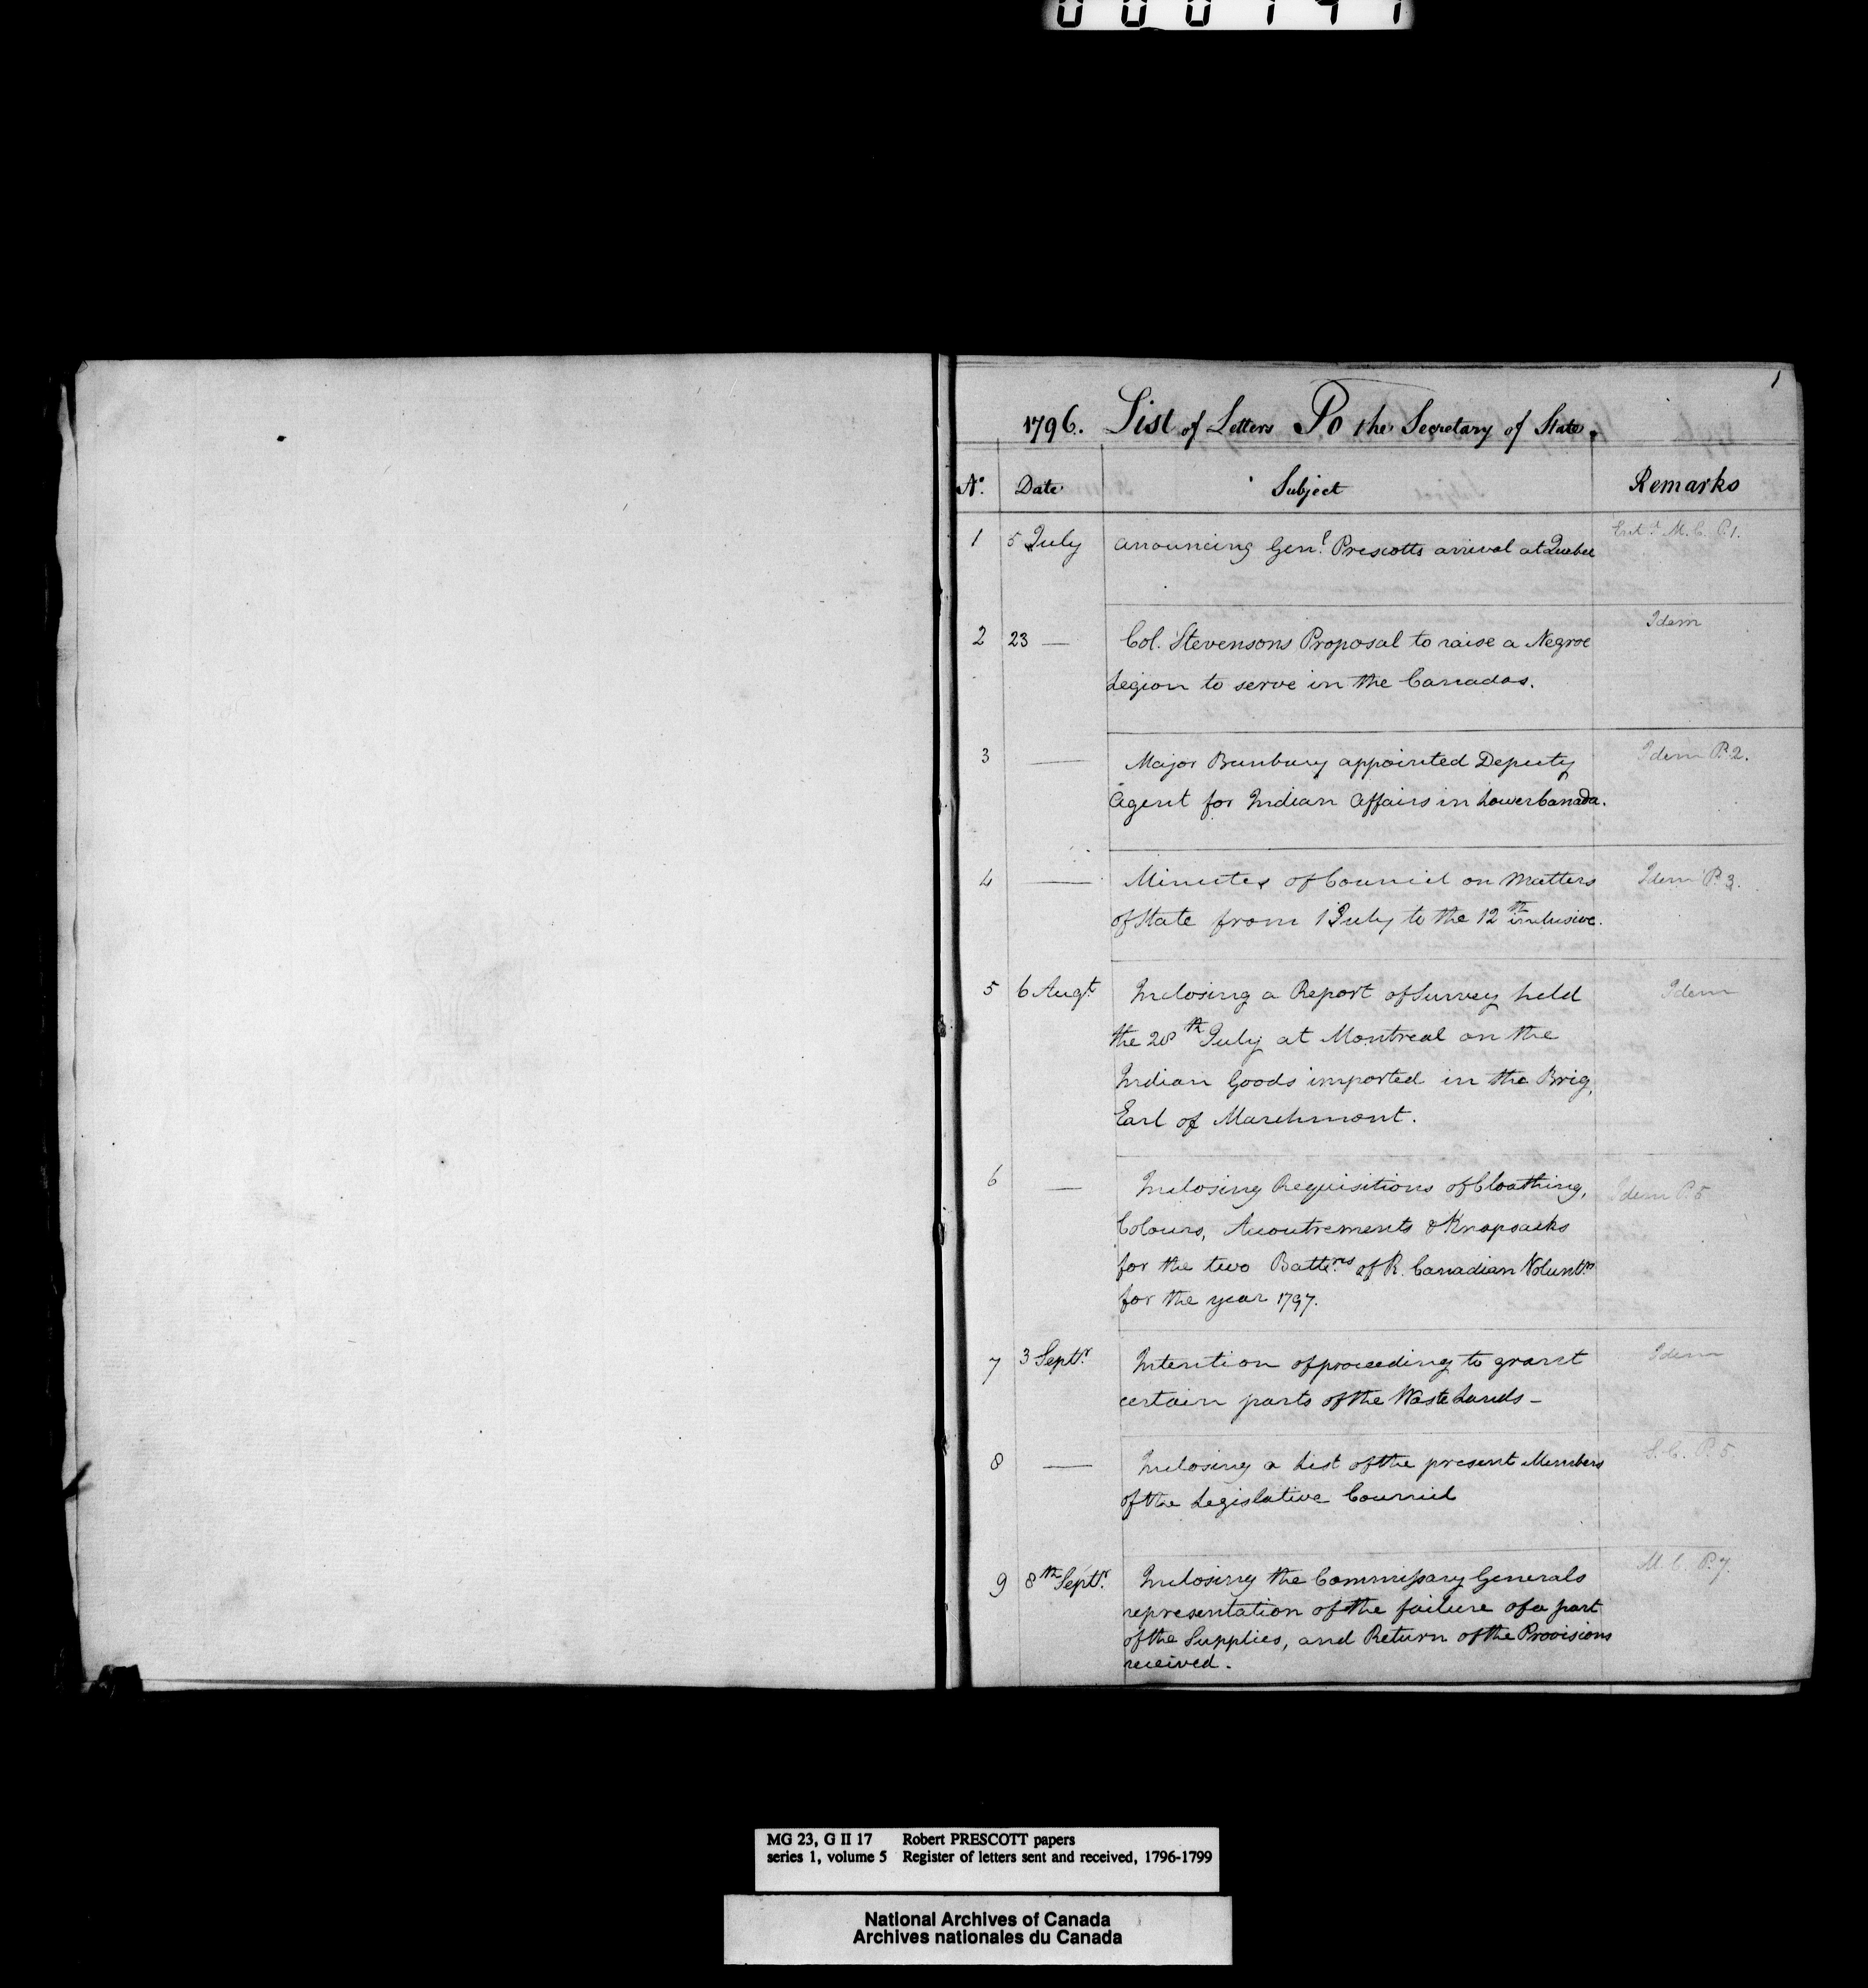 1
1796. List of Letters To the Secretary of State.
No. Date Subject Remarks
1 5 July announcing Genl. Prescotts arrival at Quebec Entd. M.C. P.1.
2 23 — Col. Stevensons Proposal to raise a Negroe Idem
Legion to serve in the Canadas.
3 — Major Bunbury appointed Deputy Idem P.2.
Agent for Indian Affairs in Lower Canada.
4 — Minutes of Council on Matters Idem P.3.
of State from 1 July to the 12th inclusive.
5 6 Augt. Inclosing a Report of Survey held Idem
the 28th July at Montreal on the
Indian Goods imported in the Brig,
Earl of Marchmont.
6 — Inclosing Requisitions of Cloathing, Idem P.5
Colours, Accoutrements & Knapsacks
for the two Battns. of R. Canadian Voluntrs
for the year 1797.
7 3 Septr. Intention of proceeding to grant Idem
certain parts of the Waste Lands –
8 — Inclosing a List of the present Members S.C. P.5.
of the Legislative Council
9 8th Septr. Inclosing the Commissary Generals M.C. P.7.
representation of the failure of a part
of the Supplies, and Return of the Provisions
received.
MG 23, G II 17 Robert PRESCOTT papers
series 1, volume 5 Register of letters sent and received, 1796-1799
National Archives of Canada
Archives nationales du Canada